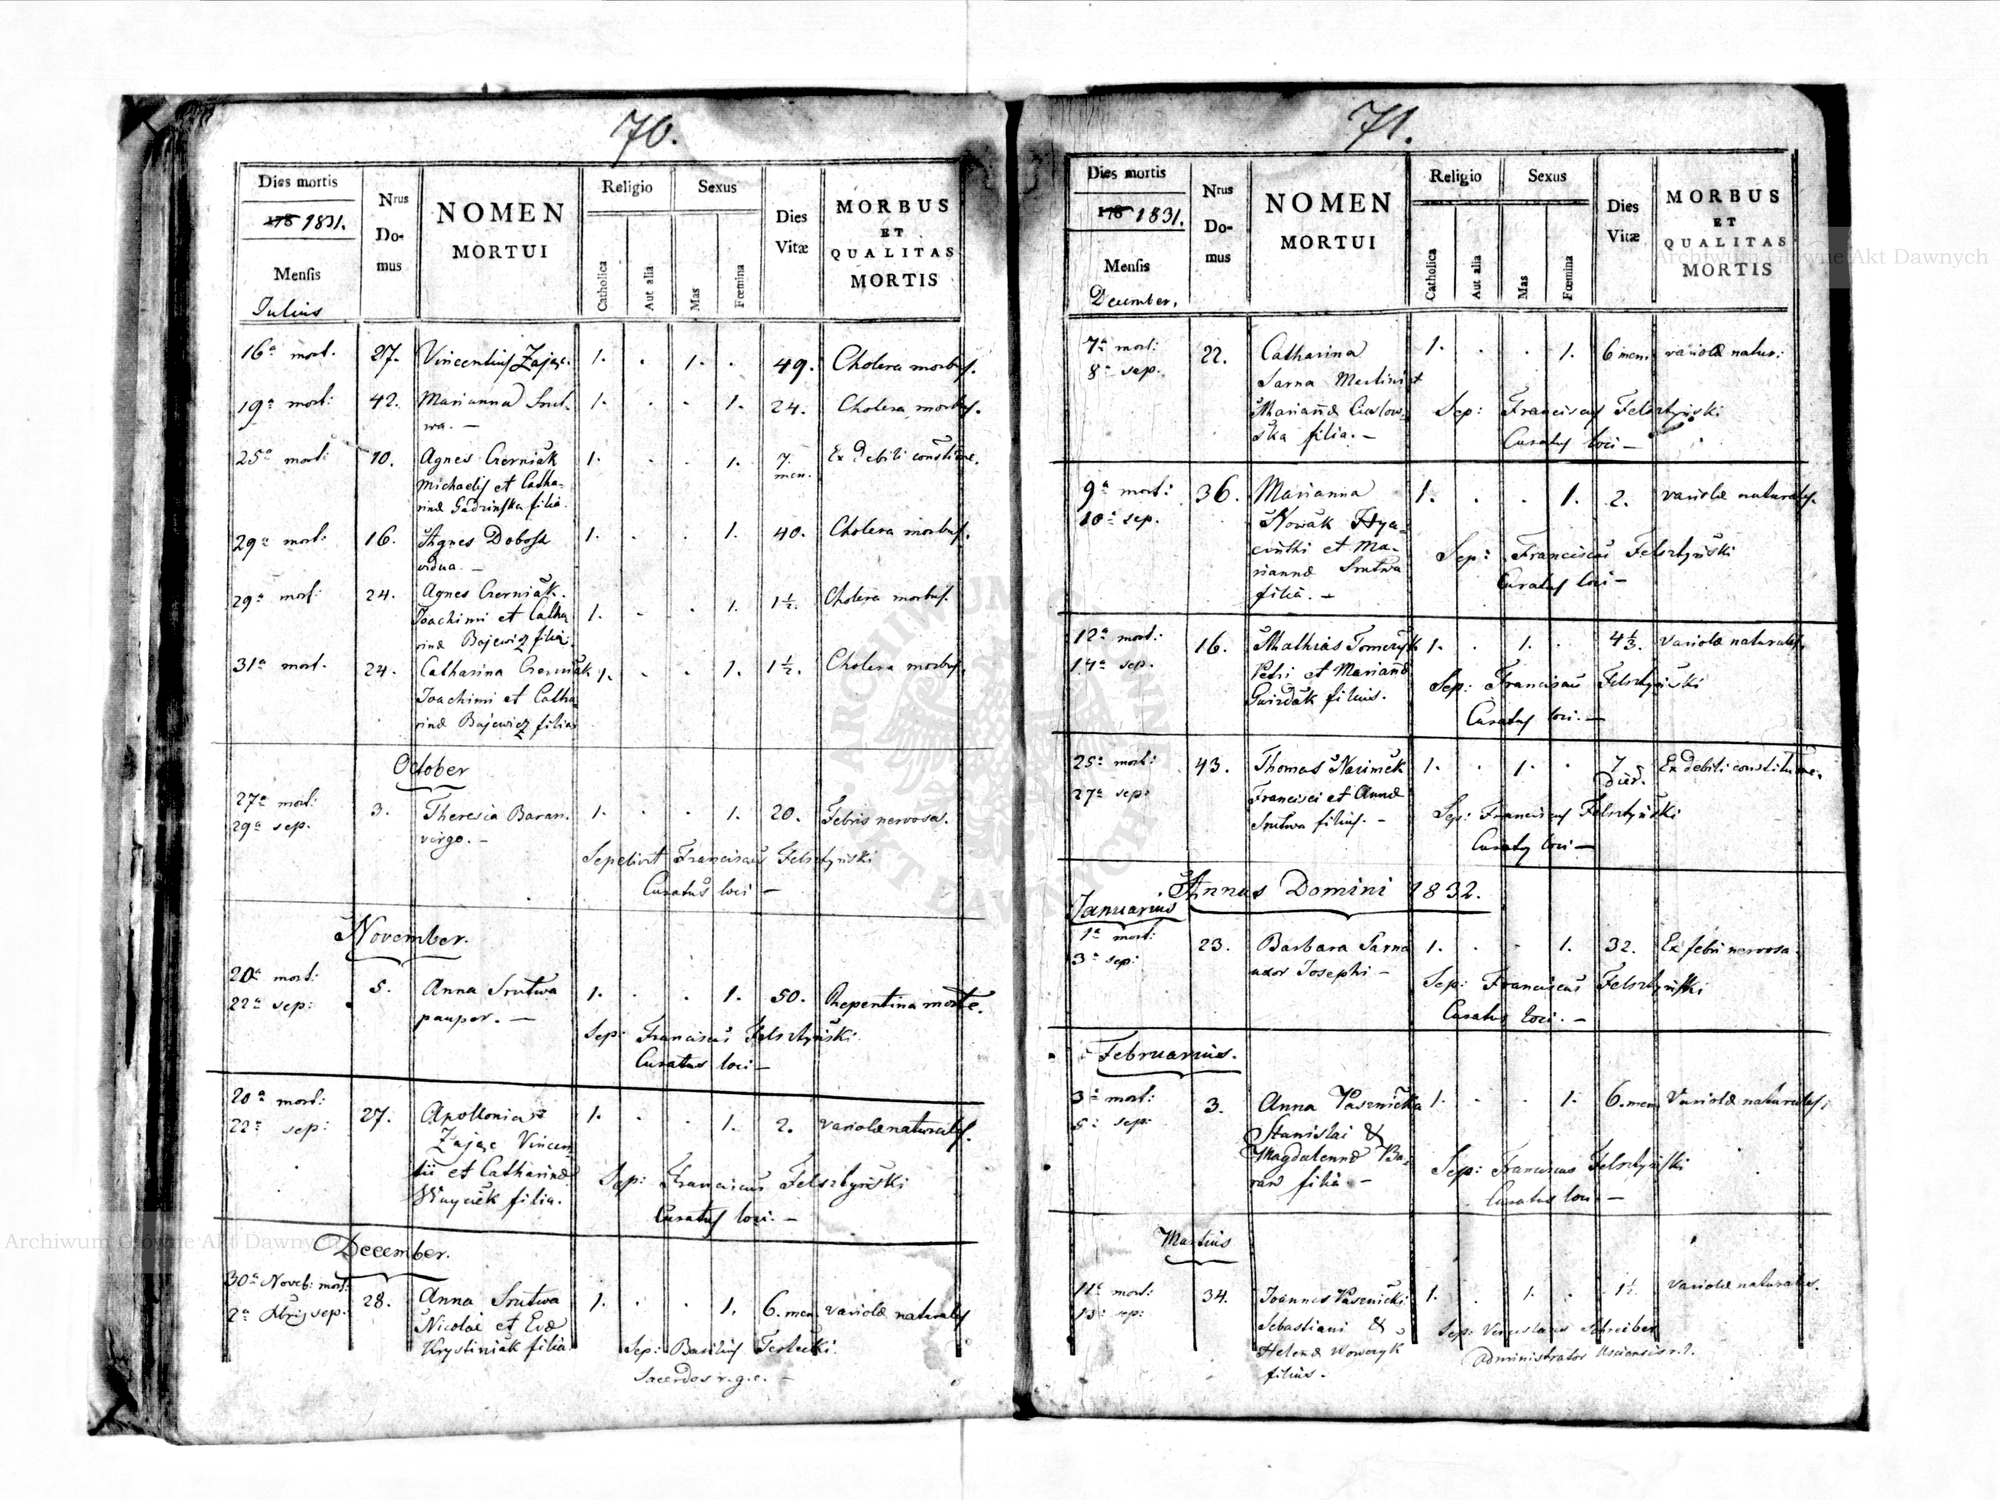 70.
Dies mortis
178 1831.
Mensis
Julius
Nrus
Do-
mus
NOMEN
MORTUI
Religio
Catholica
Aut alia
Sexus
Mas
Fœmina
Dies
Vitæ
MORBUS
ET
QUALITAS
MORTIS
16a mort. 27. Vincentius Zając. 1. . 1. . 49. Cholera morbus.
19a mort: 42. Marianna Srut- 1. . . 1. 24. Cholera morbus.
wa. —
25a mort: 10. Agnes Czerniak 1. . . 1. 7. Ex debili constitne.
men.
Michaelis et Catha-
rinæ filia.
29a mort: 16. Agnes Dobosz 1. . . 1. 40. Cholera morbus.
vidua. —
29a mort: 24. Agnes Czerniak. 1. . . 1. 1½. Cholera morbus.
Joachimi et Catha
rinæ Bajewicz filia.
31a mort. 24. Catharina Czerniak 1. . . 1. 1½. Cholera morbus.
Joachimi et Catha
rinæ Bajewicz filia
October
27a mort: 3. Theresia Baran. 1. . . 1. 20. Febris nervosa.
29a sep. virgo. —
Sepelivit Franciscus Felsztyński
Curatus loci —
November.
20a mort: 5. Anna Srutwa 1. . . 1. 50. Repentina morte.
22a sep: pauper. —
Sep: Franciscus Felsztyński
Curatus loci —
20a mort: 27. Apollonia 1. . . 1. 2. variolæ naturales.
22a sep: Zając Vincen
tii et Catharinæ
filia.
Sep: Franciscus Felsztyński
Curatus loci. —
December.
30a Noveb: mort: 28. Anna Srutwa 1. . . 1. 6. men variolæ naturales
2a Xbris sep: Nicolai et Evæ
Krystiniak filia.
Sep: Basilius Terlecki.
Sacerdos r. g. c. —
71.
Dies mortis
178 1831.
Mensis
December.
Nrus
Do-
mus
NOMEN
MORTUI
Religio
Catholica
Aut alia
Sexus
Mas
Fœmina
Dies
Vitæ
MORBUS
ET
QUALITAS
MORTIS
7a mort: 22. Catharina 1. . . 1. 6 men. variolæ natur:
8a sep. Sarna Martini et
Mariannæ
ska filia. —
Sep: Franciscus Felsztyński
Curatus loci —
9a mort: 36. Marianna 1. . . 1. 2. variolæ naturales.
10a sep. Nowak Hya-
cinthi et Ma-
riannæ Srutwa
filia. —
Sep: Franciscus Felsztyński
Curatus loci —
12a mort: 16. Mathias Tomczyk 1. . 1. . 4⅓. variolæ naturales.
14a sep. Petri et Mariannæ
Gwizdak filius.
Sep: Franciscus Felsztyński
Curatus loci. —
25a mort: 43. Thomas Nazimek 1. . 1. . 7 Ex debili constitutione.
dier.
27a sep: Francisci et Annæ
Srutwa filius. —
Sep: Franciscus Felsztyński
Curatus loci —
Annus Domini 1832.
Januarius
1a mort: 23. Barbara Sarna 1. . . 1. 32. Ex febri nervosa.
3a sep: uxor Josephi —
Sep: Franciscus Felsztyński
Curatus loci. —
Februarius.
3a mort: 3. Anna Pasznicka 1. . . 1. 6. men. Variolæ naturales.
5a sep: Stanislai &
Magdalennæ Ba-
ran filia. —
Sep: Franciscus Felsztyński
Curatus loci. —
Martius
11a mort: 34. Joannes Pasznicki 1. . 1. . 1½ Variolæ naturales.
13a sep: Sebastiani &
Helenæ Wowczyk
filius.
Sep: Venceslaus Schreiber
Administrator
Archiwum Główne Akt Dawnych
Archiwum Główne Akt Dawnych
ARCHIWUM GŁÓWNE AKT DAWNYCH